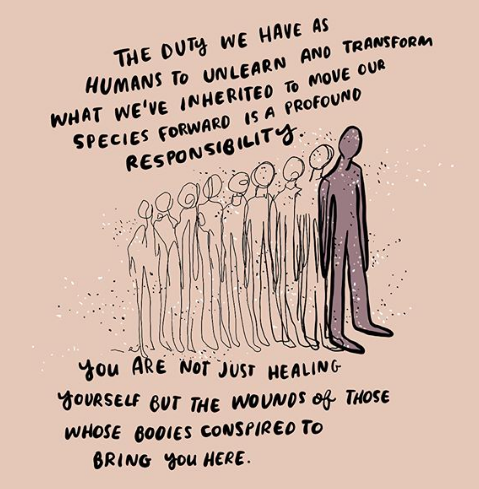 THE DUTY WE HAVE AS
HUMANS TO UNLEARN AND TRANSFORM
WHAT WE'VE INHERITED TO MOVE OUR
SPECIES FORWARD IS A PROFOUND
RESPONSIBILITY.
YOU ARE NOT JUST HEALING
YOURSELF BUT THE WOUNDS of THOSE
WHOSE BODIES CONSPIRED TO
BRING YOU HERE.